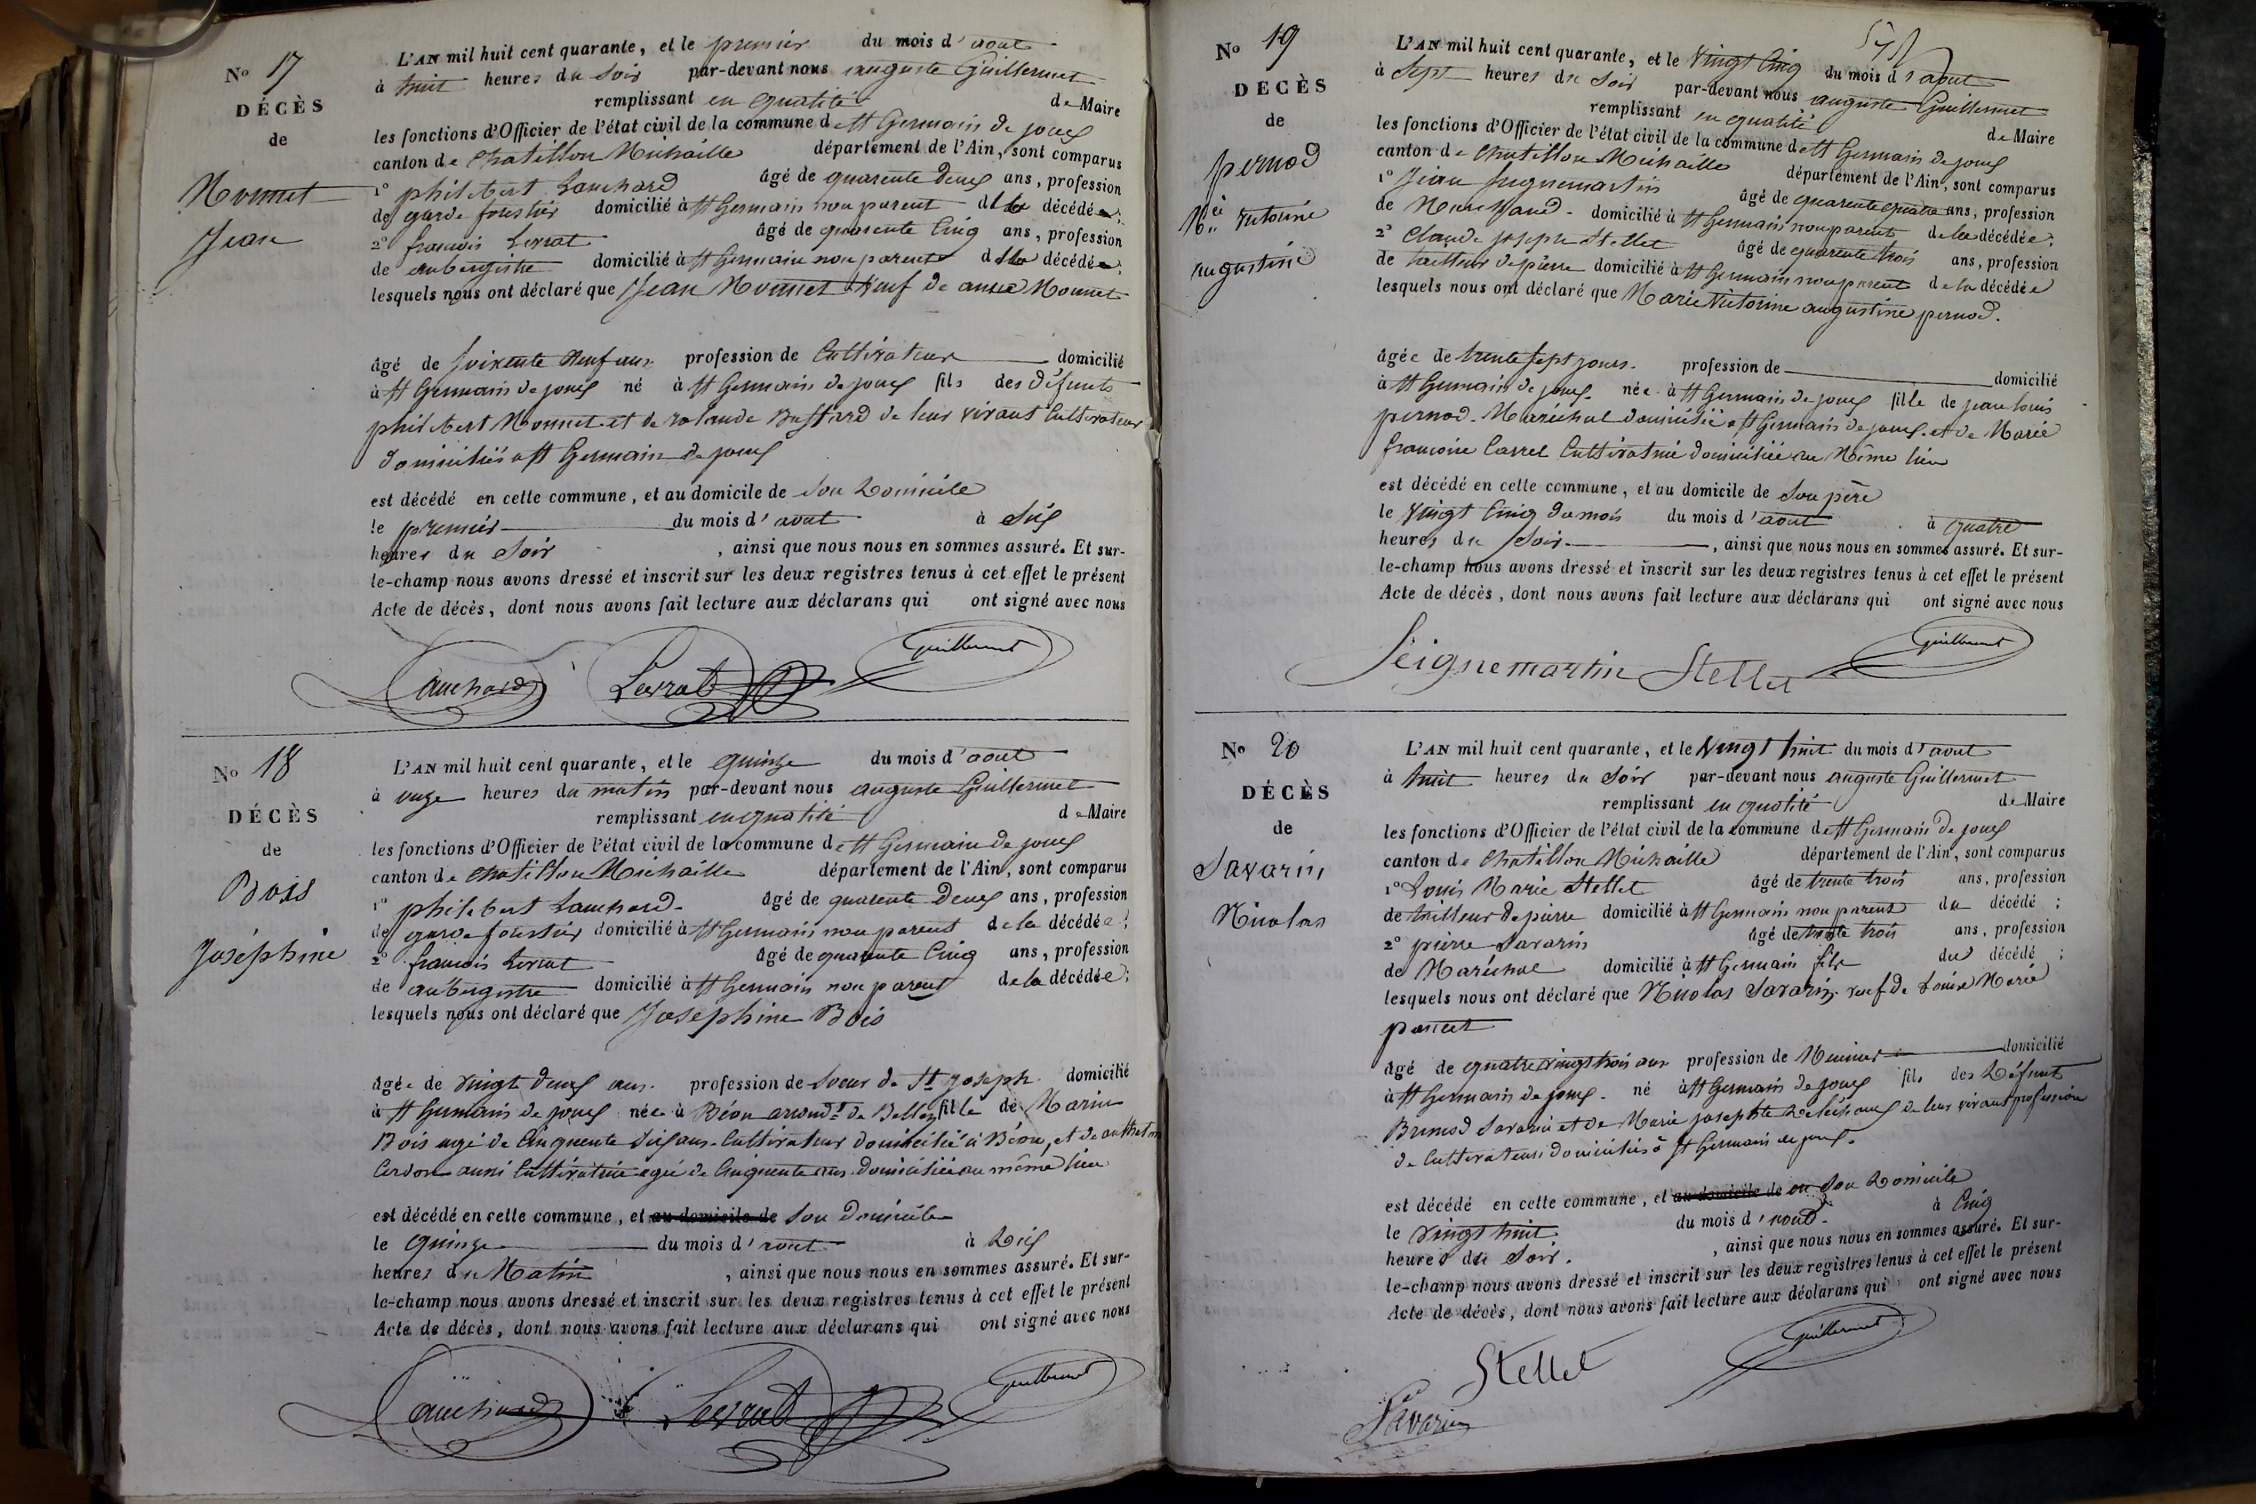 N° 17
DÉCÈS
de
Monnet
Jean
L'AN mil huit cent quarante, et le premier du mois d'aout
à huit heures du soir par-devant nous auguste Guillermet
remplissant en qualité de Maire
les fonctions d'Officier de l'état civil de la commune de St Germain de joux
canton de Chatillon Michaille département de l'Ain, sont comparus
1° philibert Lanchard âgé de quarente deux ans, profession
de garde forestier domicilié à St Germain non parent décédé ;
2° francois Levrat âgé de quarente Cinq ans, profession
de aubergiste domicilié à St Germain non parent décédé ;
lesquels nous ont déclaré que Jean Monnet Veuf de Monnet
âgé de soixente neuf ans profession de Cultivateur domicilié
à St Germain de joux né à St Germain de joux fils des défunts
philibert Monnet et de rolande Buffard de leur vivant Cultivateur
domiciliés a St Germain de joux
est décédé en cette commune, et au domicile de son Domicile
le premier du mois d'aout à six
heures du soir , ainsi que nous nous en sommes assuré. Et sur-
le-champ nous avons dressé et inscrit sur les deux registres tenus à cet effet le présent
Acte de décès, dont nous avons fait lecture aux déclarans qui ont signé avec nous
Lanchard Levrat Guillermet
N° 18
DÉCÈS
de
Bois
Joséphine
L'AN mil huit cent quarante, et le quinze du mois d'aout
à onze heures du matin par-devant nous auguste Guillermet
remplissant en qualité de Maire
les fonctions d'Officier de l'état civil de la commune de St Germain de joux
canton de Chatillon Michaille département de l'Ain, sont comparus
1° philibert Lanchard âgé de quarente deux ans, profession
de garde forestier domicilié à St Germain non parent de la décédée ;
2° francois Levrat âgé de quarente Cinq ans, profession
de aubergiste domicilié à St Germain non parent de la décédée ;
lesquels nous ont déclaré que Josephine Bois
âgée de vingt deux ans profession de soeur de St Joseph domicilié
à St Germain de joux née à Béon arrondt de Belley fille de Marin
Bois agé de Cinquente six ans Cultivateur domicilié à Béon, et de
Cordon aussi Cultivatrice agée de Cinquente ans domiciliée au même lieu
est décédé en cette commune, et au domicile de son Domicile
le quinze du mois d'aout à dix
heures du Matin , ainsi que nous nous en sommes assuré. Et sur-
le-champ nous avons dressé et inscrit sur les deux registres tenus à cet effet le présent
Acte de décès, dont nous avons fait lecture aux déclarans qui ont signé avec nous
Lanchard Levrat Guillermet
N° 19
DÉCÈS
de
pernod
Mie Victorine
augustine
L'AN mil huit cent quarante, et le Vingt Cinq du mois d'aout
à sept heures du soir par-devant nous auguste Guillermet
remplissant en qualité de Maire
les fonctions d'Officier de l'état civil de la commune de St Germain de joux
canton de Chatillon Michaille département de l'Ain, sont comparus
1° Jean Seignemartin âgé de quarente quatre ans, profession
de Marchand domicilié à St Germain non parent de la décédée ;
2° Claude joseph Stellet âgé de quarente trois ans, profession
de tailleur de pierre domicilié à St Germain non parent de la décédée
lesquels nous ont déclaré que Marie Victorine augustine pernod.
âgée de trente sept jours. profession de domicilié
à St Germain de joux. née à St Germain de joux fille de jean louis
pernod Maréchal domicilié a St Germain de joux et de Marie
francoise Carrel Cultivatrice domiciliée au Même lieu
est décédé en cette commune, et au domicile de son père
le Vingt Cinq du mois du mois d'aout à quatre
heures du soir , ainsi que nous nous en sommes assuré. Et sur-
le-champ nous avons dressé et inscrit sur les deux registres tenus à cet effet le présent
Acte de décès, dont nous avons fait lecture aux déclarans qui ont signé avec nous
Seignemartin Stellet Guillermet
N° 20
DÉCÈS
de
Savarin
Nicolas
L'AN mil huit cent quarante, et le Vingt huit du mois d'aout
à huit heures du soir par-devant nous auguste Guillermet
remplissant en qualité de Maire
les fonctions d'Officier de l'état civil de la commune de St Germain de joux
canton de Chatillon Michaille département de l'Ain, sont comparus
1° Louis Marie Stellet âgé de trente trois ans, profession
de tailleur de pierre domicilié à St Germain non parent du décédé ;
2° pierre Savarin âgé de trente trois ans, profession
de Maréchal domicilié à St Germain fils du décédé ;
lesquels nous ont déclaré que Nicolas Savarin veuf de Louise Marie
poncet
âgé de quatre vingt trois ans profession de Meunier domicilié
à St Germain de joux. né à St Germain de joux fils des Défunt
Savarin et de Marie josephte de leur vivant profession
de Cultivateurs domiciliés à St Germain de joux.
est décédé en cette commune, et au domicile de en son Domicile
le vingt huit du mois d'aout à Cinq
heures du soir. , ainsi que nous nous en sommes assuré. Et sur-
le-champ nous avons dressé et inscrit sur les deux registres tenus à cet effet le présent
Acte de décès, dont nous avons fait lecture aux déclarans qui ont signé avec nous
Stellet Guillermet
Savarin